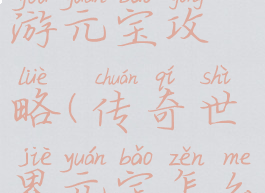 yóu yuán bǎo gōng
游元宝攻
lüè chuán qí shì
略(传奇世
jiè yuán bǎo zěn me
界元宝怎么